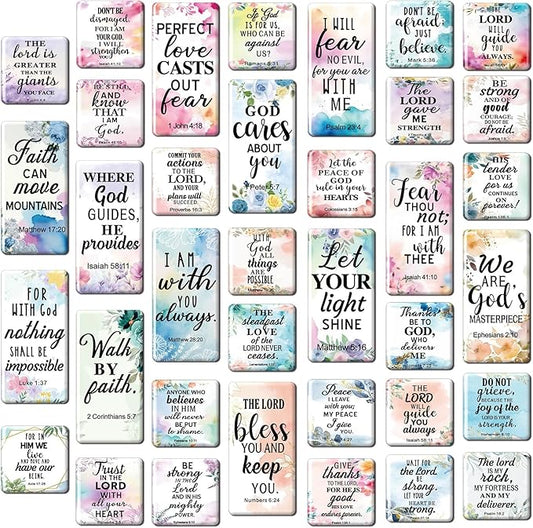 THE
lord is
GREATER
THAN THE
giants
YOU FACE
Faith
CAN
move
MOUNTAINS
Matthew 17:20
FOR
WITH God
nothing
SHALL BE
impossible
Luke 1:37
FOR IN
HIM WE
live
AND MOVE AND
have our
BEING.
DON'T BE
dismayed,
FOR I AM
YOUR GOD.
I WILL
strengthen
YOU
BE STILL
and
KNOW
THAT I
AM God.
WHERE
God
GUIDES,
HE
provides
Isaiah 58:11
Walk
BY
faith.
2 Corinthians 5:7
Trust
IN THE
LORD
WITH all
YOUR HEART
PERFECT
love
CASTS
OUT
fear
1 John 4:18
COMMIT YOUR
actions
TO THE
LORD,
AND YOUR
plans will
SUCCEED.
Proverbs 16:3
I AM
with
YOU
always.
Matthew 28:20
ANYONE WHO
believes
IN HIM
will never
BE PUT
to shame.
BE
strong
IN the
Lord
AND IN HIS
mighty
POWER.
If God
IS FOR
US, WHO
CAN BE
against
US?
Romans 8:31
GOD
cares
ABOUT
YOU
WITH
God
ALL
things
ARE
POSSIBLE
THE
steadfast
LOVE
of the
LORD NEVER
ceases.
THE LORD
bless
YOU AND
KEEP
you.
Numbers 6:24
I WILL
fear
NO EVIL,
for you are
WITH
ME
Psalm 23:4
Let the
PEACE OF
GOD
rule in your
HEARTS
Colossians 3:15
Let
YOUR
light
SHINE
Matthew 5:16
Peace
I LEAVE
with you;
MY PEACE
I give
YOU.
GIVE
thanks
TO THE LORD,
FOR HE IS
good.
HIS LOVE
endures forever.
DON'T BE
afraid;
JUST
believe.
Mark 5:36
The
LORD
gave
ME
STRENGTH
Fear
THOU
not;
FOR I AM
with
THEE
Isaiah 41:10
Thanks
BE TO
GOD,
who
delivers
ME
THE
LORD
will
guide
YOU
always
Isaiah 58:11
WAIT FOR
the Lord,
BE
strong,
LET YOUR
heart
BE STRONG.
THE
LORD
will
guide
YOU
ALWAYS.
BE
strong
AND OF
good
COURAGE;
DO NOT BE
afraid.
HIS
tender
LOVE
for us
CONTINUES
ON
forever!
We
ARE
God's
MASTERPIECE
Ephesians 2:10
DO NOT
grieve,
BECAUSE THE
joy of the
LORD IS
your
strength
The lord
IS MY
rock,
MY FORTRESS
AND MY
deliverer